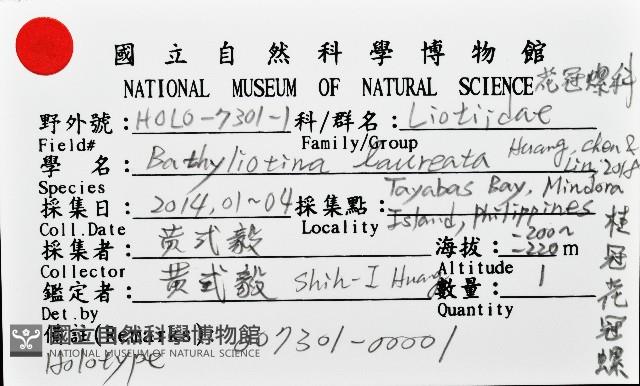 國立自然科學博物館
NATIONAL MUSEUM OF NATURAL SCIENCE 花冠螺科
野外號：HOLO-7301-1 科/群名：Liotiidae
Field# Family/Group
學 名：Bathyliotina laureata Huang, Chen & Lin 2018
Species
採集日：2014,01~04 採集點：Tayabas Bay, Mindora Island, Philippines
Coll.Date Locality
採集者：黃式毅 海拔：-200~-220m
Collector Altitude
鑑定者：黃式毅 Shih-I Huang 數量：1
Det.by Quantity
備註(Remarks) 007301-00001
Holotype
桂冠花冠螺
國立自然科學博物館
NATIONAL MUSEUM OF NATURAL SCIENCE